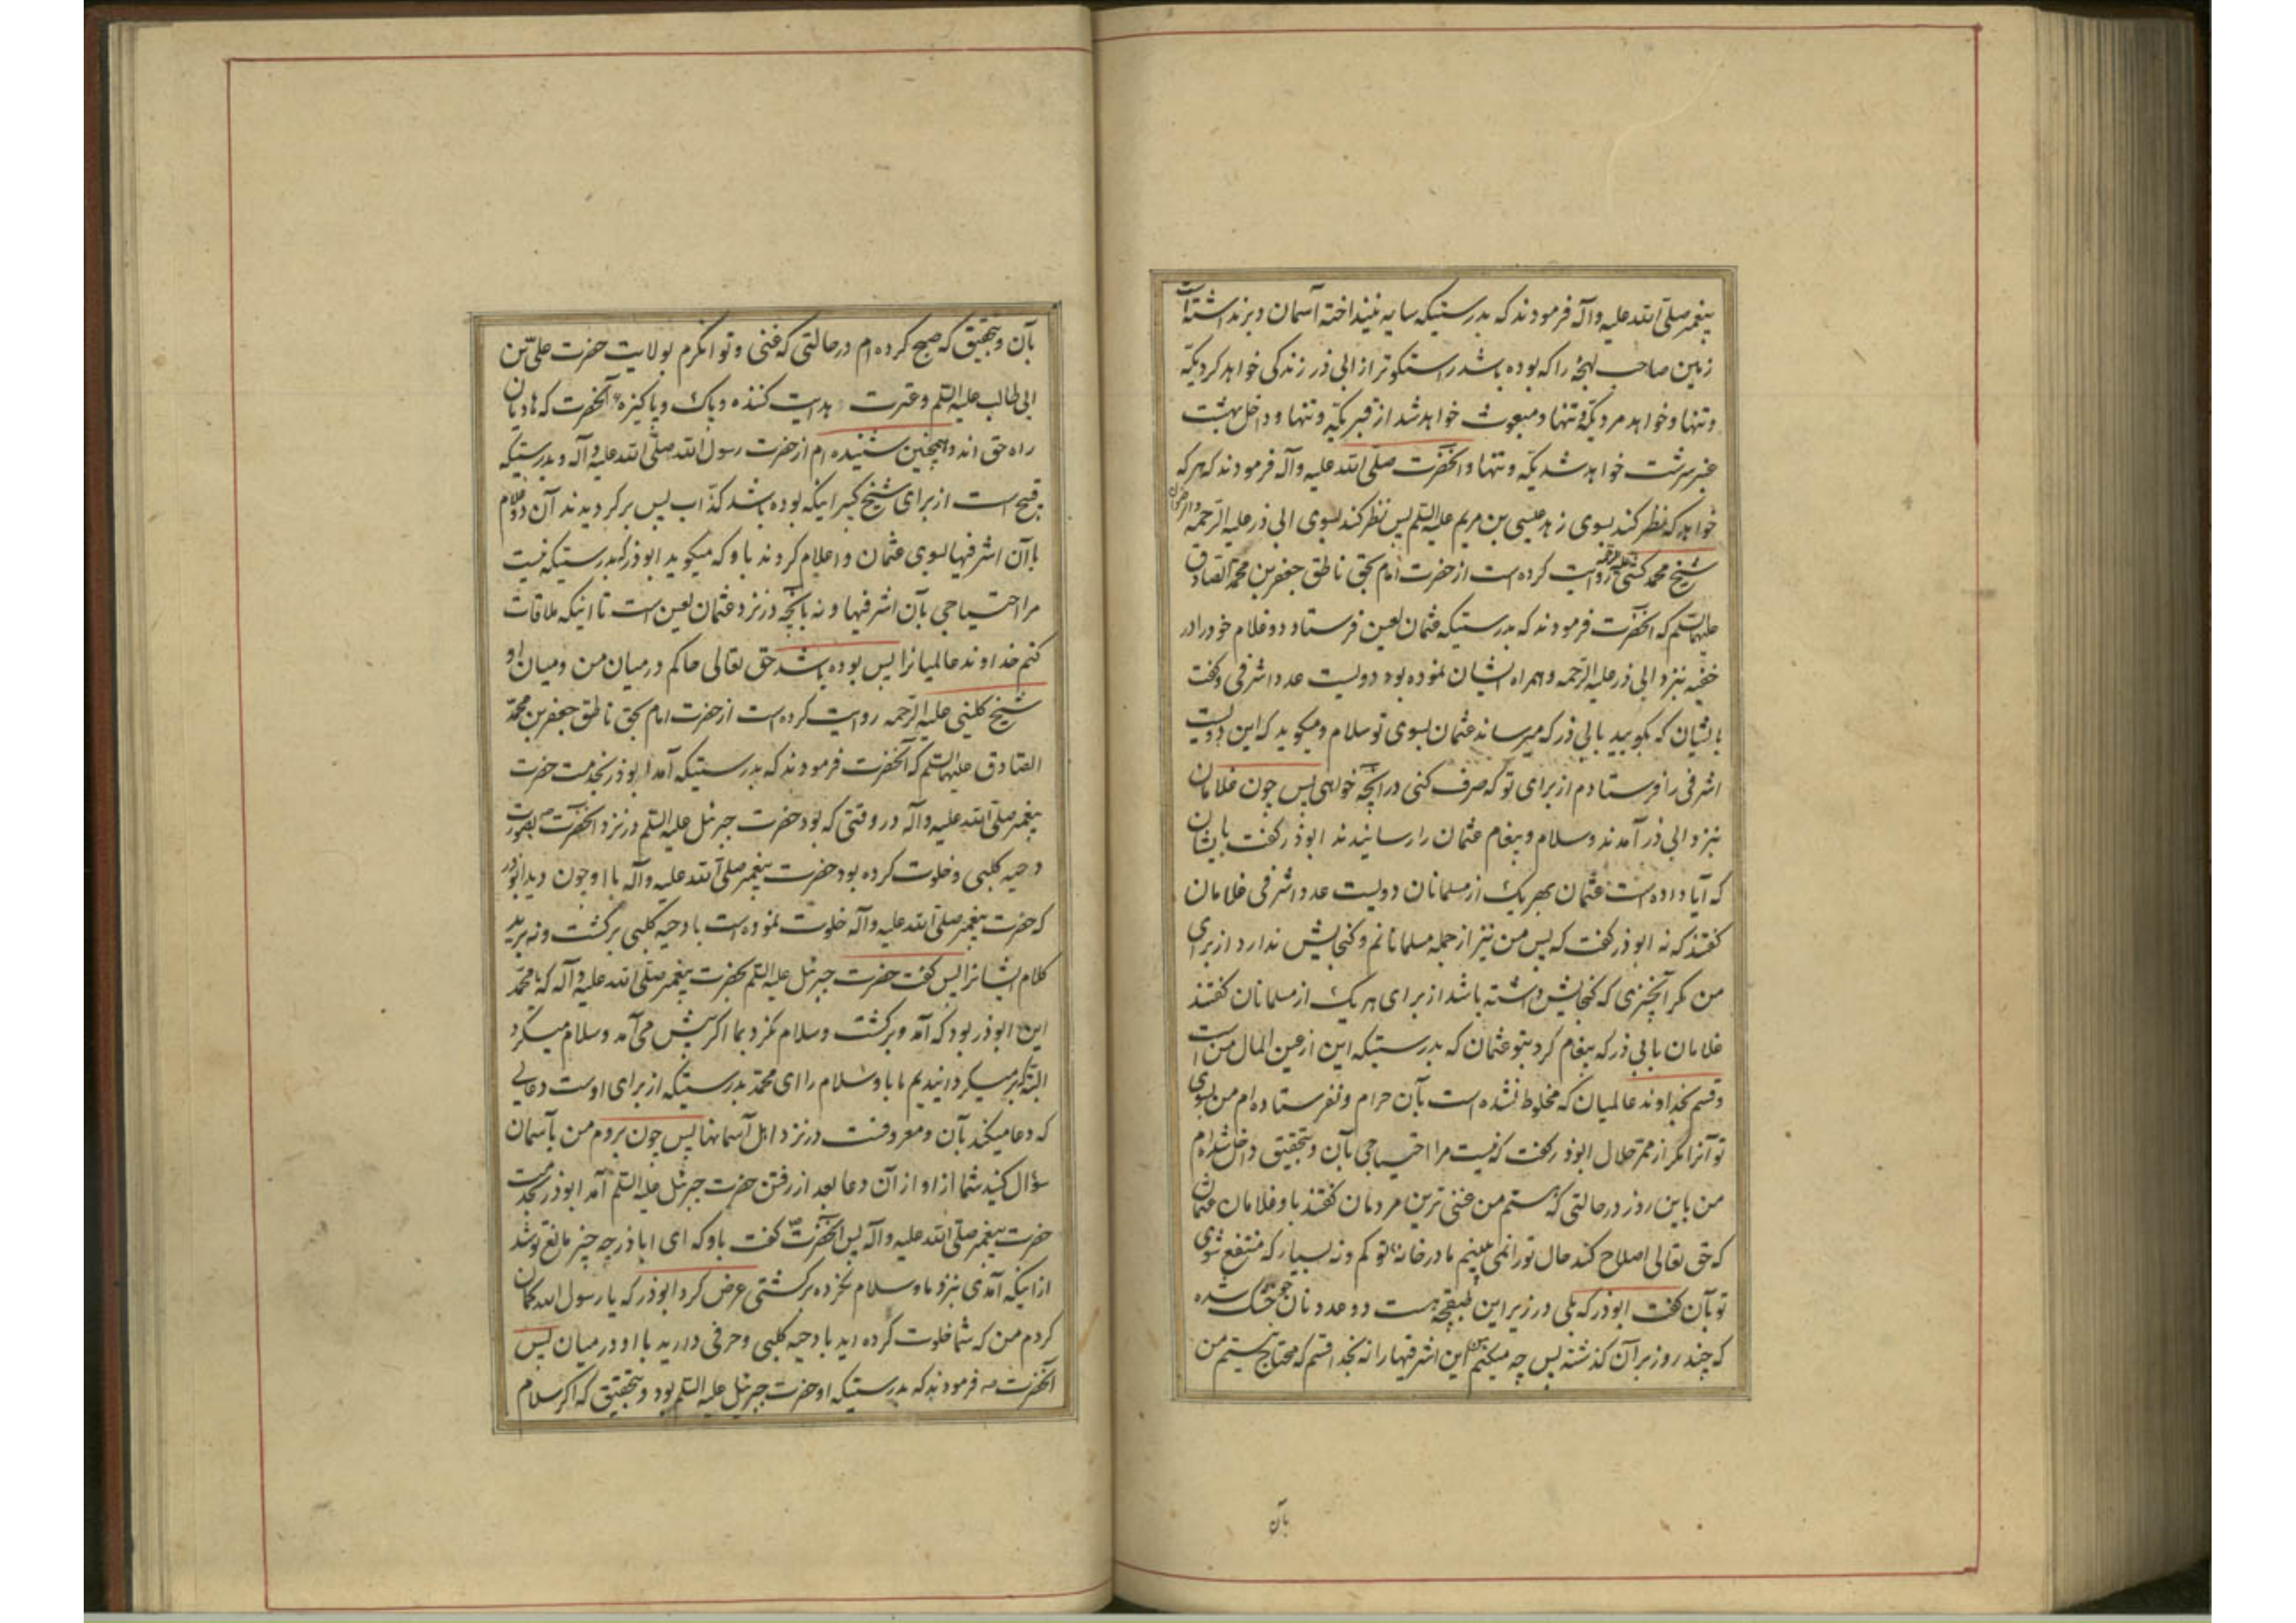 پیغمبر صلی الله علیه و آله فرمودند که بدرستیکه سایه نینداخته آسمان و برنداشته است
زمین صاحب لهجهٔ را که بوده باشد راستکوتر از ابی ذر زندکی خواهد کرد یکه
و تنها و خواهد مرد یکه و تنها و مبعوث خواهد شد از قبر یکه و تنها و داخل بهشت
عنبر سرشت خواهد شد یکه و تنها و آنحضرت صلی الله علیه و آله فرمودند که هر که
خواهد که نظر کند بسوی زهد عیسی بن مریم علیه السلم پس نظر کند بسوی ابی ذر علیه الرحمه و الرضوان
شیخ محمد کشی علیه الرحمه روایت کرده است از حضرت امام بحق ناطق جعفر بن محمد الصادق
علیهما السلم که آنحضرت فرمودند که بدرستیکه عثمان لعین فرستاد دو غلام خود را در
خفیه بنزد ابی ذر علیه الرحمه و همراه ایشان نموده بود دویست عدد اشرفی و کفت
بایشان که بکویید بابی ذر که میرساند عثمان بسوی تو سلام و میکوید که این دویست
اشرفی را فرستادم از برای تو که صرف کنی در آنچه خواهی پس چون غلامان
بنزد ابی ذر آمدند و سلام و پیغام عثمان را رسانیدند ابوذر کفت بایشان
که آیا داده است عثمان بهر یک از مسلمانان دویست عدد اشرفی غلامان
کفتند که نه ابوذر کفت که پس من نیز از جمله مسلمانانم و کنجایش ندارد از برای
من مکر آنچیزی که کنجایش داشته باشد از برای هر یک از مسلمانان کفتند
غلامان بابی ذر که پیغام کرد بتو عثمان که بدرستیکه این از عین المال من است
و قسم بخداوند عالمیان که مخلوط نشده است بآن حرام و نفرستاده ام من بسوی
تو آنرا مکر از ممر حلال ابوذر کفت که نیست مرا احتیاجی بآن و بتحقیق داخل شده ام
من باین روز در حالتی که هستم من غنی ترین مردمان کفتند باو غلامان عثمان
که حق تعالی اصلاح کند حال تو را نمی بینیم ما در خانهٔ تو کم و نه بسیار که منتفع شوی
تو بآن کفت ابوذر که بلی در زیر این طبقچه هست دو عدد نان جو خشک شده
که چند روز بر آن کذشته پس چه میکنم من این اشرفیها را نه بخدا قسم که محتاج نیستم من
بآن
بآن و بتحقیق که صبح کرده ام در حالتی که غنی و توانکرم بولایت حضرت علی بن
ابی طالب علیه السلم و عترت هدایت کننده و پاک و پاکیزهٔ آنحضرت که هادیان
راه حق اند و همچنین شنیده ام از حضرت رسول الله صلی الله علیه و آله و بدرستیکه
قبیح است از برای شیخ کبیر اینکه بوده باشد کذاب پس برکردیدند آن دو غلام
با آن اشرفیها بسوی عثمان و اعلام کردند باو که میکوید ابوذر که بدرستیکه نیست
مرا احتیاجی بآن اشرفیها و نه بآنچه در نزد عثمان لعین است تا اینکه ملاقات
کنم خداوند عالمیانرا پس بوده باشد حق تعالی حاکم در میان من و میان او
شیخ کلینی علیه الرحمه روایت کرده است از حضرت امام بحق ناطق جعفر بن محمد
الصادق علیهما السلم که آنحضرت فرمودند که بدرستیکه آمد ابوذر بخدمت حضرت
پیغمبر صلی الله علیه و آله در وقتی که بود حضرت جبرئیل علیه السلم در نزد آنحضرت ص بصورت
دحیه کلبی و خلوت کرده بود حضرت پیغمبر صلی الله علیه و آله با او چون دید ابوذر
که حضرت پیغمبر صلی الله علیه و آله خلوت نموده است با دحیه کلبی برکشت و نه برید
کلام ایشانرا پس کفت حضرت جبرئیل علیه السلم بحضرت پیغمبر صلی الله علیه و آله که یا محمد
این ابوذر بود که آمد و برکشت و سلام نکرد بما اکر پیش می آمد و سلام میکرد
البته که بر میکردانیدیم ما باو سلام را ای محمد بدرستیکه از برای اوست دعایی
که دعا میکند بآن و معروفست در نزد اهل آسمانها پس چون بروم من بآسمان
سؤال کنید شما از او از آن دعا بعد از رفتن حضرت جبرئیل علیه السلم آمد ابوذر بخدمت
حضرت پیغمبر صلی الله علیه و آله پس آنحضرت ص کفت باو که ای اباذر چه چیز مانع تو شد
از اینکه آمدی بنزد ما و سلام نکرده برکشتی عرض کرد ابوذر که یا رسول الله کمان
کردم من که شما خلوت کرده اید با دحیه کلبی و حرفی دارید با او در میان پس
آنحضرت ص فرمودند که بدرستیکه او حضرت جبرئیل علیه السلم بود و بتحقیق که اکر سلام